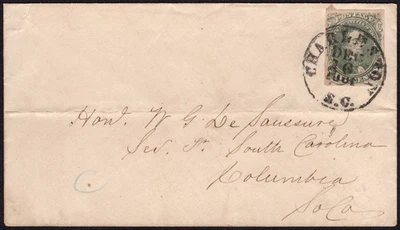 POSTAGE
CHARLESTON
DEC
6
1861
S.C.
Hon. W G De Saussure
Sec. Tr. South Carolina
Columbia
So Ca
C